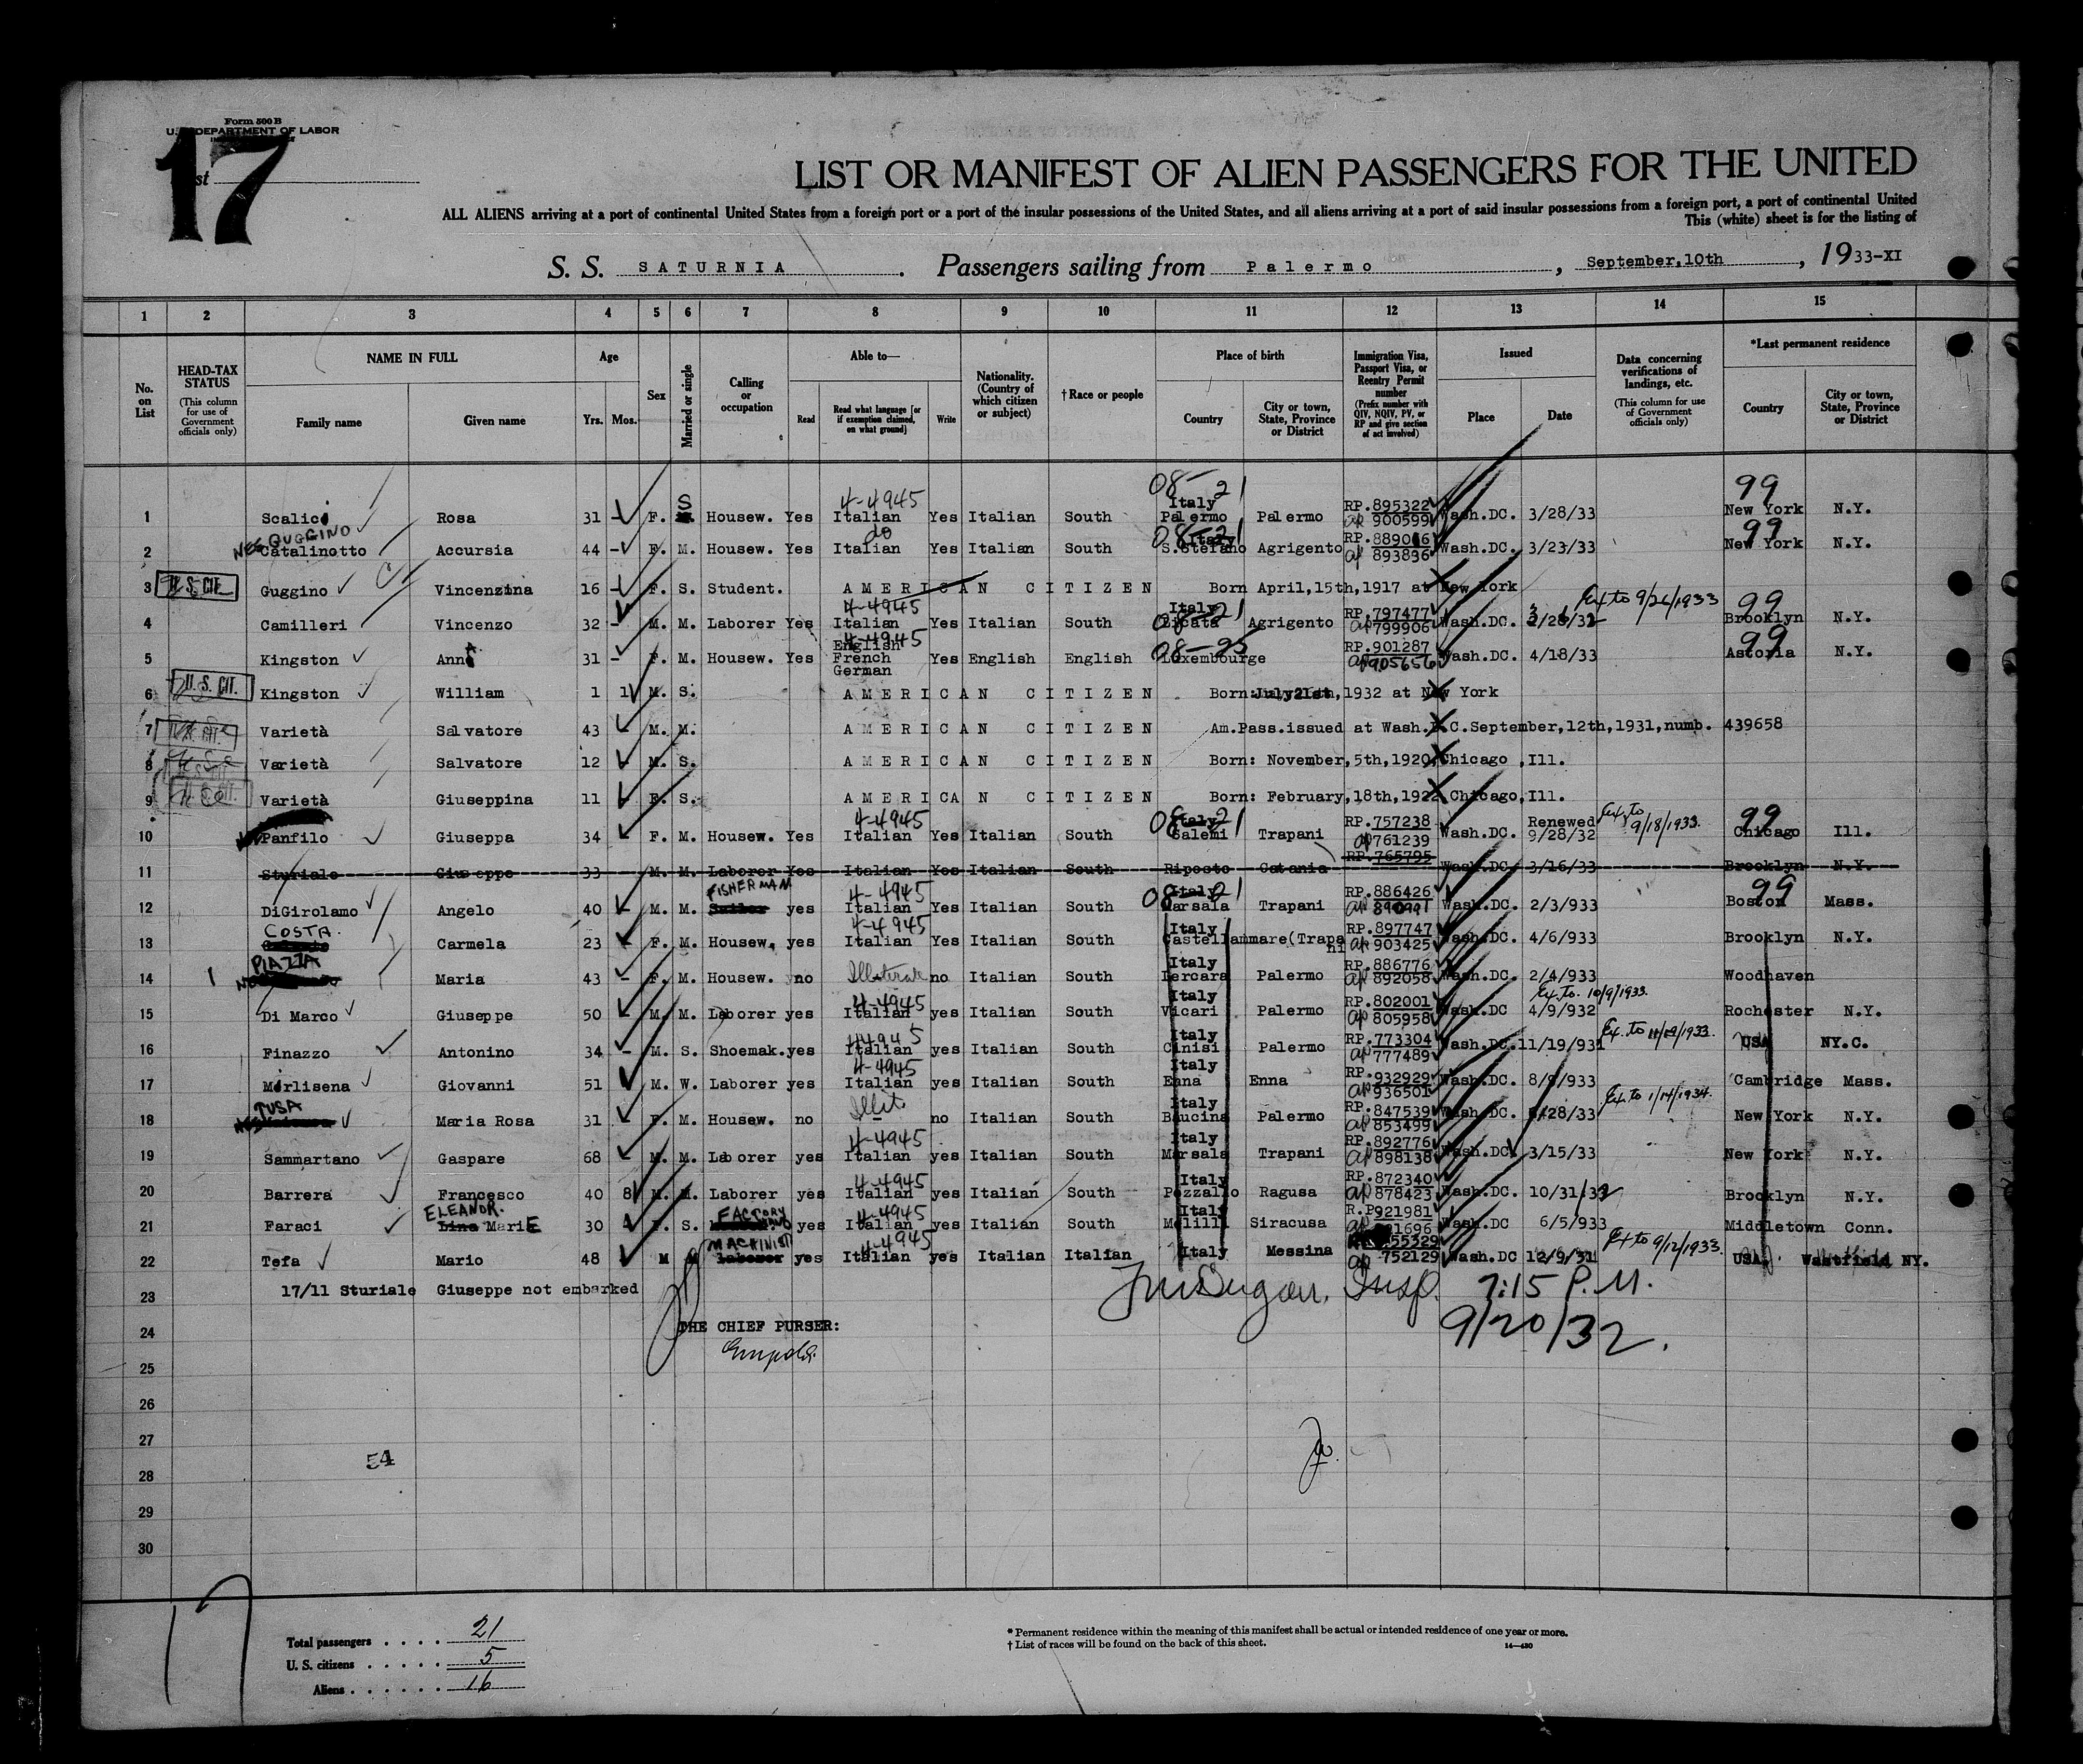 Form 500 B
U. S. DEPARTMENT OF LABOR
17
LIST OR MANIFEST OF ALIEN PASSENGERS FOR THE UNITED
ALL ALIENS arriving at a port of continental United States from a foreign port or a port of the insular possessions of the United States, and all aliens arriving at a port of said insular possessions from a foreign port, a port of continental United
This (white) sheet is for the listing of
S. S. SATURNIA. Passengers sailing from Palermo, September,10th, 1933-XI
1 2 3 4 5 6 7 8 9 10 11 12 13 14 15
No. on List
HEAD-TAX STATUS (This column for use of Government officials only)
NAME IN FULL Family name Given name
Age Yrs. Mos.
Sex
Married or single
Calling or occupation
Able to— Read Read what language [or if exemption claimed, on what ground] Write
Nationality. (Country of which citizen or subject)
†Race or people
Place of birth Country City or town, State, Province or District
Immigration Visa, Passport Visa, or Reentry Permit number (Prefix number with QIV, NQIV, PV, or RP and give section of act involved)
Issued Place Date
Data concerning verifications of landings, etc. (This column for use of Government officials only)
*Last permanent residence Country City or town, State, Province or District
4-4945 08-21 99
1 Scalici Rosa 31 - F. S Housew. Yes Italian Yes Italian South Italy Palermo Palermo RP.895322 ap 900599 Wash.DC. 3/28/33 New York N.Y.
NEE GUGGINO do 08-21 99
2 Catalinotto Accursia 44 - F. M. Housew. Yes Italian Yes Italian South Italy S.Stefano Agrigento RP.889066 ap 893836 Wash.DC. 3/23/33 New York N.Y.
3 U.S. CIT. Guggino Vincenzina 16 - F. S. Student. AMERICAN CITIZEN Born April,15th,1917 at New York
4-4945 08-21 Ex to 9/26/1933 99
4 Camilleri Vincenzo 32 - M. M. Laborer Yes Italian Yes Italian South Italy Licata Agrigento RP.797477 ap 799906 Wash.DC. Brooklyn N.Y.
4-4945 08-25 99
5 Kingston Anna 31 - F. M. Housew. Yes English French German Yes English English Luxembourge RP.901287 ap 905656 Wash.DC. 4/18/33 Astoria N.Y.
6 U.S. CIT. Kingston William 1 1 M. S. AMERICAN CITIZEN Born: 1932 at New York
7 Varietà Salvatore 43 M. M. AMERICAN CITIZEN Am.Pass.issued at Wash.D.C.September,12th,1931,numb. 439658
8 Varietà Salvatore 12 M. S. AMERICAN CITIZEN Born: November,5th,1920,Chicago ,Ill.
9 Varietà Giuseppina 11 F. S. AMERICAN CITIZEN Born: February,18th,1922 Chicago,Ill.
4-4945 08-21 Ex to 9/18/1933. 99
10 Panfilo Giuseppa 34 F. M. Housew. Yes Italian Yes Italian South Italy Salemi Trapani RP.757238 ap 761239 Wash.DC. Renewed 9/28/32 Chicago Ill.
11 Sturiale Giuseppe 33 M. M. Laborer Yes Italian Yes Italian South Riposto Catania RP.765795 Wash.DC. 3/16/33 Brooklyn N.Y.
FISHERMAN 4-4945 08-21 99
12 DiGirolamo Angelo 40 - M. M. yes Italian Yes Italian South Italy Marsala Trapani RP.886426 ap 890991 Wash.DC. 2/3/933 Boston Mass.
COSTA. 4-4945
13 Carmela 23 - F. M. Housew. yes Italian Yes Italian South Italy Castellammare(Trapani RP.897747 ap 903425 Wash.DC. 4/6/933 Brooklyn N.Y.
PIAZZA
14 1 Maria 43 - F. M. Housew. no Illiterate no Italian South Italy Lercara Palermo RP.886776 ap 892058 Wash.DC. 2/4/933 Woodhaven
4-4945 Ex. To. 10/9/1933.
15 Di Marco Giuseppe 50 M. M. Laborer yes Italian yes Italian South Italy Vicari Palermo RP.802001 ap 805958 Wash.DC 4/9/932 Rochester N.Y.
4-4945 Ex. to 11/19/1933.
16 Finazzo Antonino 34 - M. S. Shoemak. yes Italian yes Italian South Italy Cinisi Palermo RP.773304 ap 777489 Wash.DC.11/19/931 USA NY.C.
4-4945
17 Morlisena Giovanni 51 M. W. Laborer yes Italian yes Italian South Italy Enna Enna RP.932929 ap 936501 Wash.DC. 8/9/933 Cambridge Mass.
TUSA Ex to 1/14/1934.
18 NEE Maria Rosa 31 F. M. Housew. no Illit no Italian South Italy Baucina Palermo RP.847539 ap 853499 Wash.DC. New York N.Y.
4-4945
19 Sammartano Gaspare 68 M. M. Laborer yes Italian yes Italian South Italy Marsala Trapani RP.892776 ap 898138 Wash.DC. 3/15/33 New York N.Y.
4-4945
20 Barrera Francesco 40 8 M. M. Laborer yes Italian yes Italian South Italy Pozzallo Ragusa RP.872340 ap 878423 Wash.DC. 10/31/32 Brooklyn N.Y.
ELEANOR. FACTORY 4-4945
21 Faraci Lina MariE 30 F. S. yes Italian yes Italian South Italy Melilli Siracusa R.P921981 Wash.DC 6/5/933 Middletown Conn.
MACHINIST 4-4945 Ex to 9/12/1933.
22 Tefa Mario 48 M M Laborer yes Italian yes Italian Italian Italy Messina ap 752129 Wash.DC 12/9/31 USA. Westfield NY.
23 17/11 Sturiale Giuseppe not embarked Insp. 7:15 P.M.
24 THE CHIEF PURSER: 9/20/32.
25
26
27
54
28
29
30
17
Total passengers . . . . 21
U. S. citizens . . . . . 5
Aliens . . . . . . 16
* Permanent residence within the meaning of this manifest shall be actual or intended residence of one year or more.
† List of races will be found on the back of this sheet.
14—430